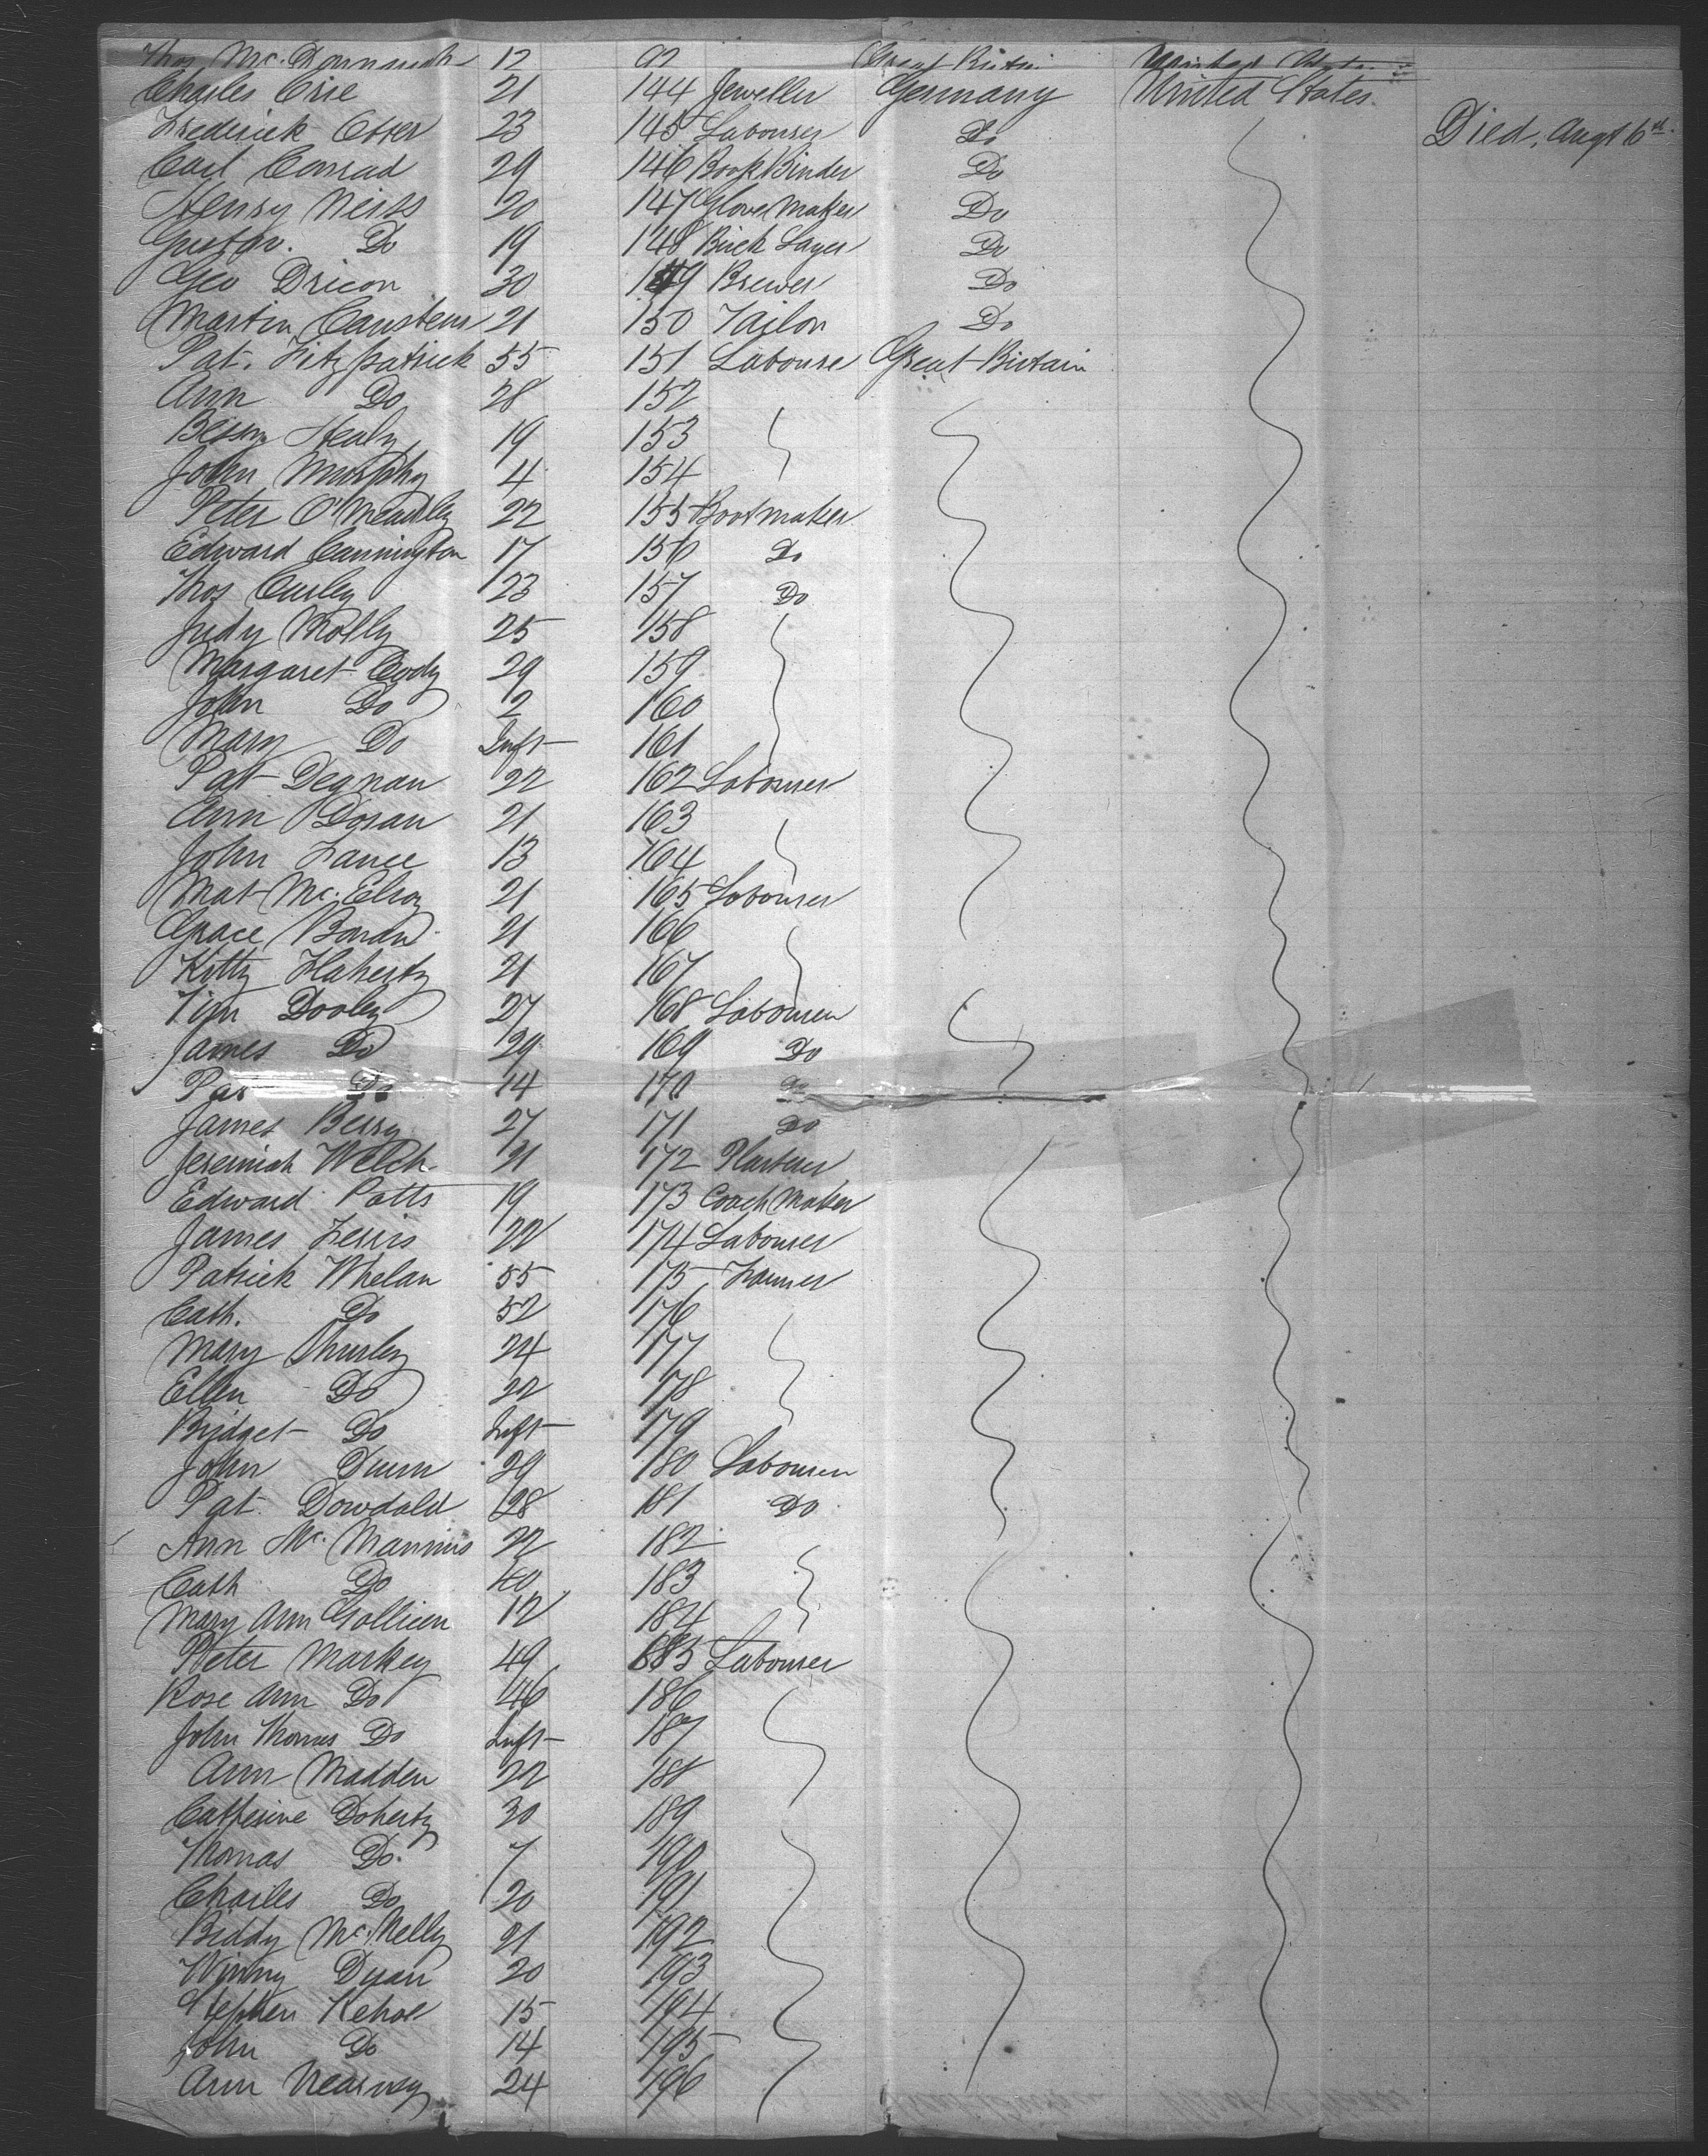 Thos Mc. 12 92 Great Britain United States
Charles Crie 21 144 Jeweller Germany United States
Frederick Esser 23 145 Labourer Do Died, Augt 6th
Carl Conrad 29 146 Book Binder Do
Henry Weiss 20 147 Glove Maker Do
Gustav. Do 19 148 Brick Layer Do
Geo Dricon 30 149 Brewer Do
Martin Carstens 21 150 Tailor Do
Pat. Fitzpatrick 55 151 Laboure Great Britain
Ann Do 28 152
Bessy Healy 19 153
John Murphy 4 154
Peter 22 155 Bootmaker
Edward Cannington 17 156 Do
Thos Curley 23 157 Do
Judy Molly 25 158
Margaret Cody 29 159
John Do 2 160
Mary Do Inft 161
Pat Degnan 22 162 Labourer
Ann Doran 21 163
John Lance 13 164
Mat Mc. Elroy 21 165 Labourer
Grace 21 166
Kitty Flaherty 21 167
Tim Dooley 27 168 Labourer
James Do 29 169 Do
Pat Do 14 170 Do
James Berry 27 171 Do
Jeremiah Welch 21 172 Plasterer
Edward Potts 19 173 Coach Maker
James Ferris 22 174 Labourer
Patrick Whelan 55 175 Farmer
Cath. Do 52 176
Mary Thurley 24 177
Ellen Do 22 178
Bridget Do Inft 179
John Dunn 29 180 Labourer
Pat. Dowdald 28 181 Do
Ann Mc. Mannus 22 182
Cath Do 40 183
Mary Ann Gollieen 12 184
Peter Markey 49 185 Labourer
Rose Ann Do 46 186
John Thomas Do Inft 187
Ann Madden 22 188
Catherine Doherty 30 189
Thomas Do. 7 190
Charles Do 20 191
Biddy Mc. Nelly 21 192
Winny Dyan 20 193
Stephen Kehoe 15 194
John Do 14 195
Ann Nearney 24 196